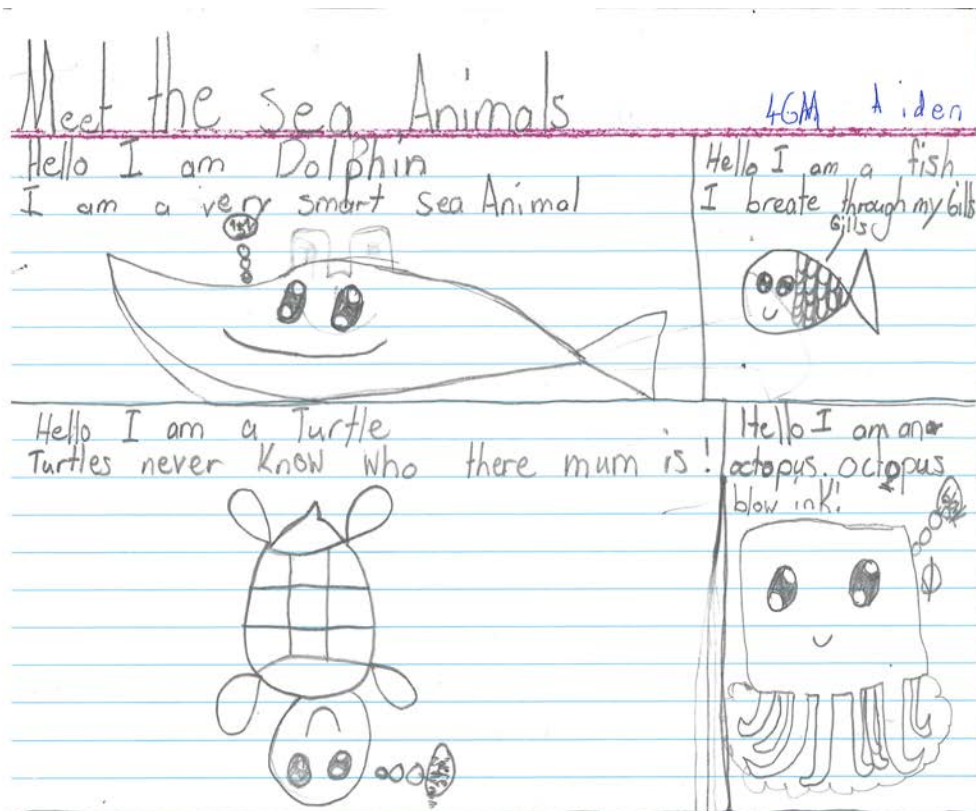 Meet the sea Animals
4GM Aiden
Hello I am Dolphin
I am a very smart sea Animal
Hello I am a fish
I breate through my Gills
Gills
Hello I am a Turtle
Turtles never Know who there mum is!
Hello I am an
octopus. Octopus
blow ink!